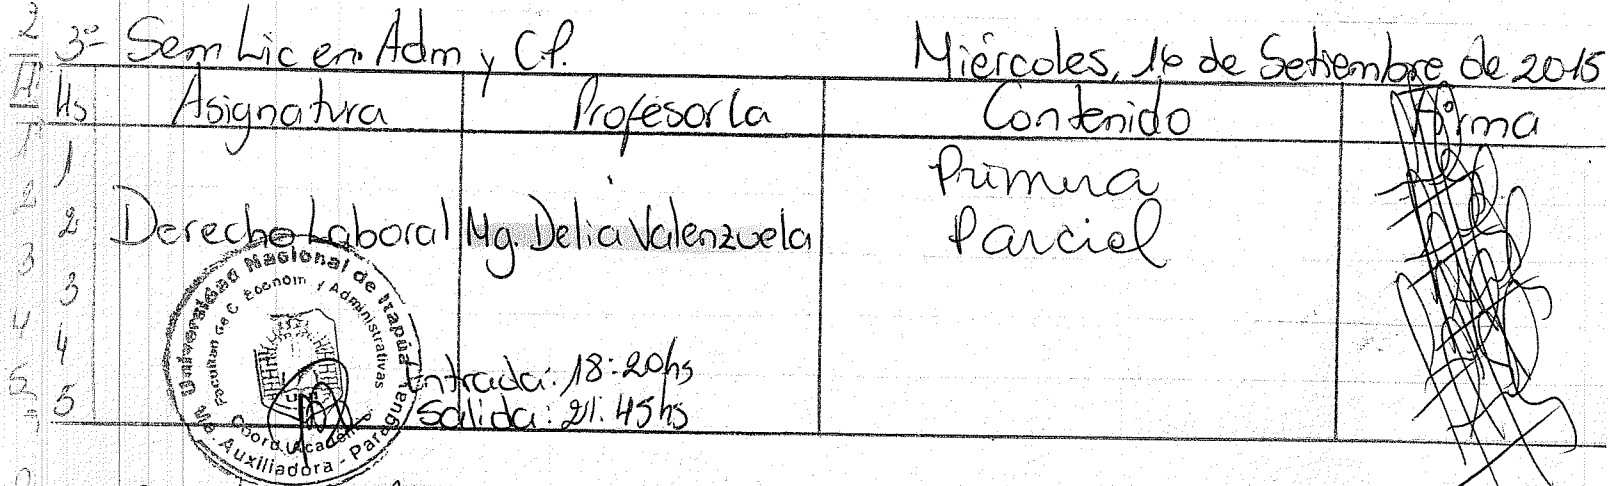 3º Sem Lic en Adm y C.P. Miércoles, 16 de Setiembre de 2015
Hs Asignatura Profesor/a Contenido Firma
1 Primera
2 Derecho Laboral Mg. Delia Valenzuela Parcial
3
4
Entrada: 18:20hs
5 Salida: 21:45hs
Universidad Nacional de Itapúa
Facultad de C. Econom y Administrativas
Coord. Academ
Ma. Auxiliadora - Paraguay